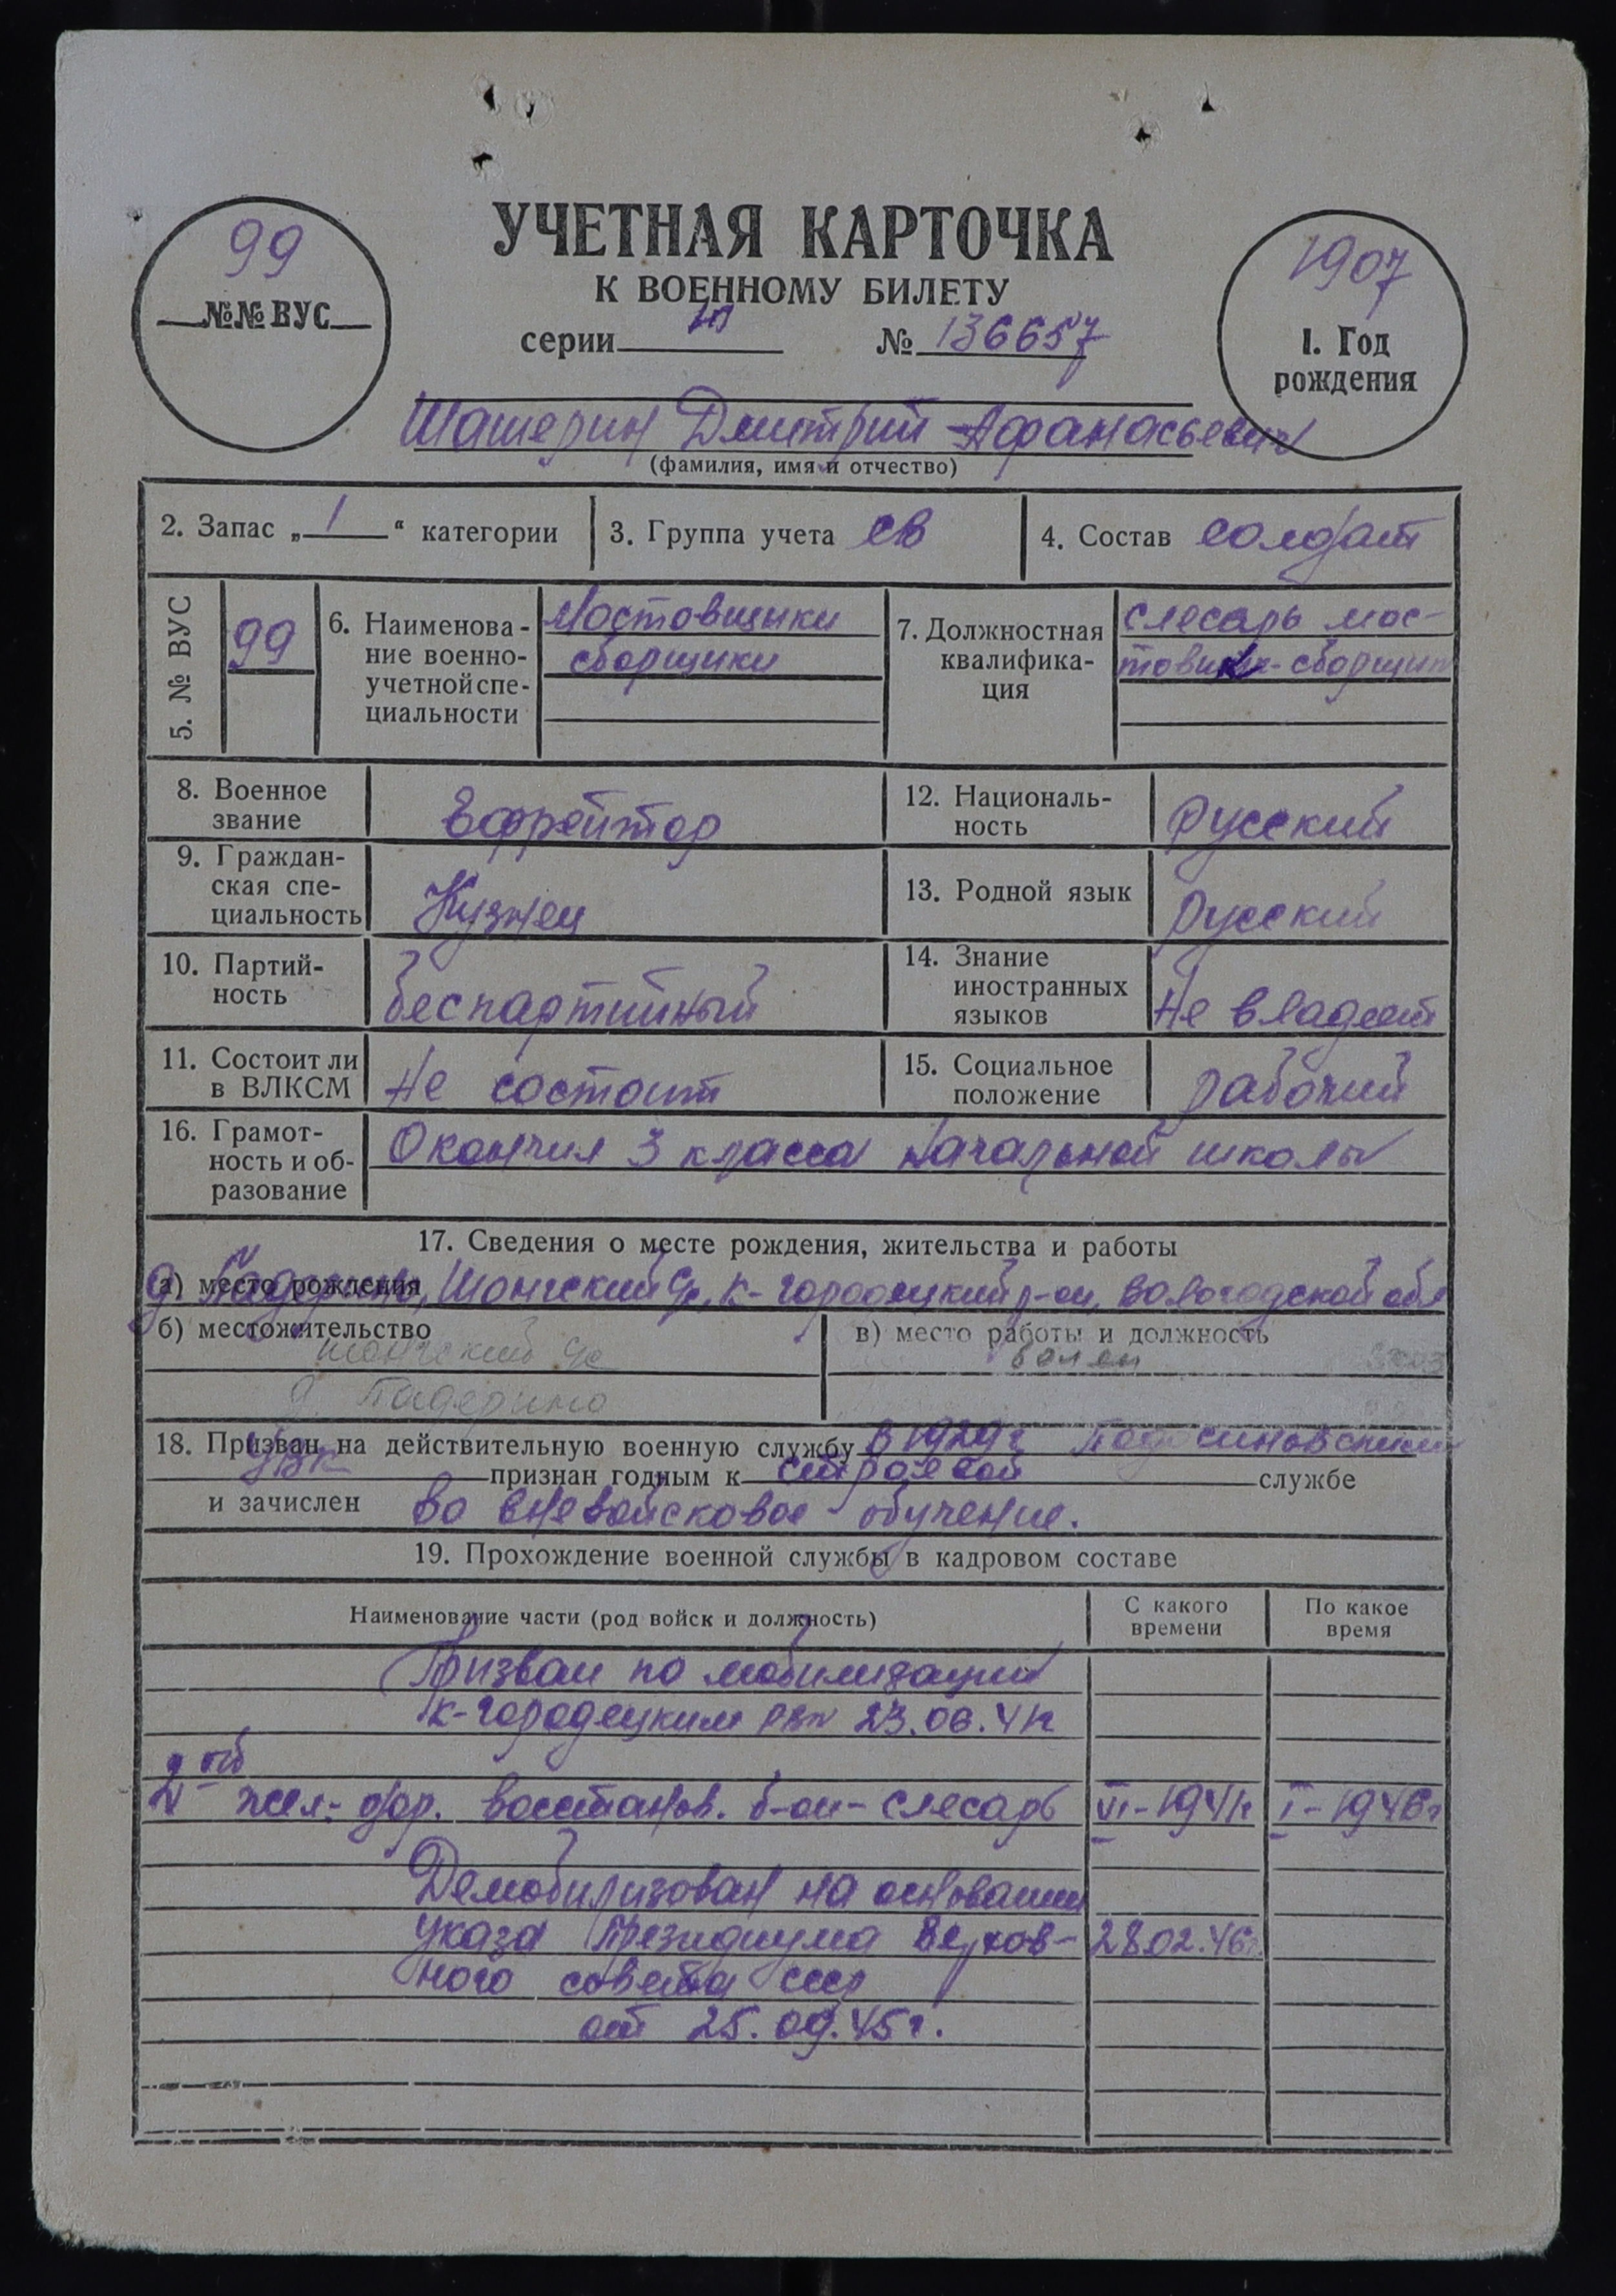 УЧЕТНАЯ КАРТОЧКА
К ВОЕННОМУ БИЛЕТУ
серии № 136657
99
№№ ВУС
1907
1. Год
рождения
Шашерин Дмитрий Афанасьевич
(фамилия, имя и отчество)
2. Запас „ 1 “ категории 3. Группа учета св 4. Состав солдат
5. № ВУС 99
6. Наименова-
ние военно-
учетной спе-
циальности
Мостовщики
сборщики
7. Должностная
квалифика-
ция
слесарь мос-
товик-сборщик
8. Военное
звание
Ефрейтор
12. Националь-
ность
Русский
9. Граждан-
ская спе-
циальность
Кузнец
13. Родной язык
Русский
10. Партий-
ность
беспартийный
14. Знание
иностранных
языков
не владеет
11. Состоит ли
в ВЛКСМ
не состоит
15. Социальное
положение
рабочий
16. Грамот-
ность и об-
разование
Окончил 3 класса начальной школы
17. Сведения о месте рождения, жительства и работы
а) место рождения
д. Падерино, Шонгский с/с, К-Городецкий р-он, Вологодской обл
б) местожительство
Шонгский с/с
д. Падерино
в) место работы и должность
18. Призван на действительную военную службу в 1929 г Подосиновским
УВК признан годным к строевой службе
и зачислен во вневойсковое обучение.
19. Прохождение военной службы в кадровом составе
Наименование части (род войск и должность) С какого времени По какое время
Призван по мобилизации
К-Городецким РВК 23.06.41г
2ой жел-дор. восстанов. б-он - слесарь VI-1941г I-1946г
Демобилизован на основании
указа Президиума Верхов- 28.02.46г.
ного совета ссср
от 25.09.45г.